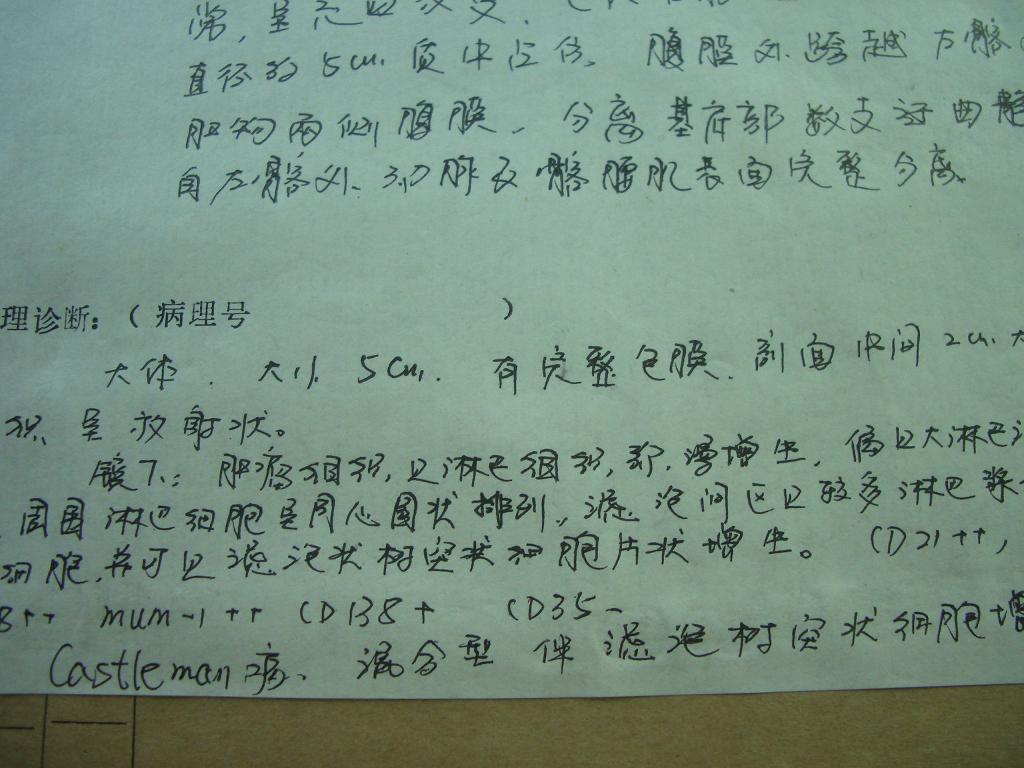 常,呈
直径约5cm.质中占位。腹股外.跨越左髂
肿物两侧腹膜.分离基底部数支迂曲
自左髂外.动脉及髂腰肌表面完整分离.
理诊断:(病理号 )
大体.大小 5cm.有完整包膜.剖面中间2cm.大
织呈放射状。
镜下:肿瘤组织,见淋巴组织,增生,偶见大淋巴
周围淋巴细胞呈同心圆状排列,滤泡间区见较多淋巴浆
细胞,并可见滤泡状树突状细胞片状增生。CD21++,
8++ mum-1++ CD138+ CD35-
Castleman病.混合型伴滤泡树突状细胞增